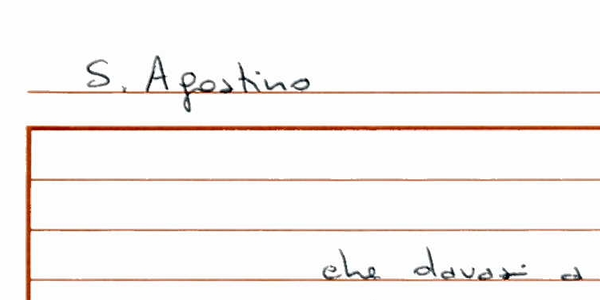 S. Agostino
che davasi a